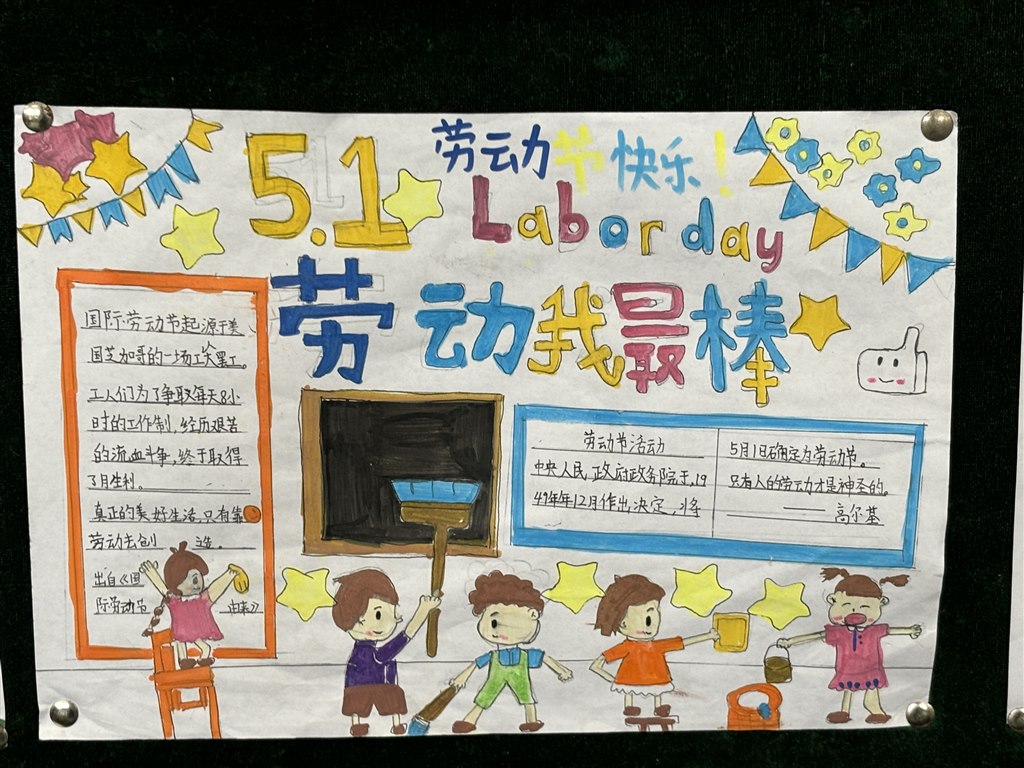 5.1
劳动节快乐!
Labor day
劳动我最棒
国际劳动节起源于美
国芝加哥的一场大罢工。
工人们为了争取每天8小
时的工作制,经历艰苦
的流血斗争,终于取得
了月生利。
真正的美好生活,只有靠
劳动去创造。
出自《国
际劳动节
由来》
劳动节活动
中央人民政府政务院于19
49年年12月作出决定,将
5月1日确定为劳动节。
只有人的劳动才是神圣的。
——高尔基